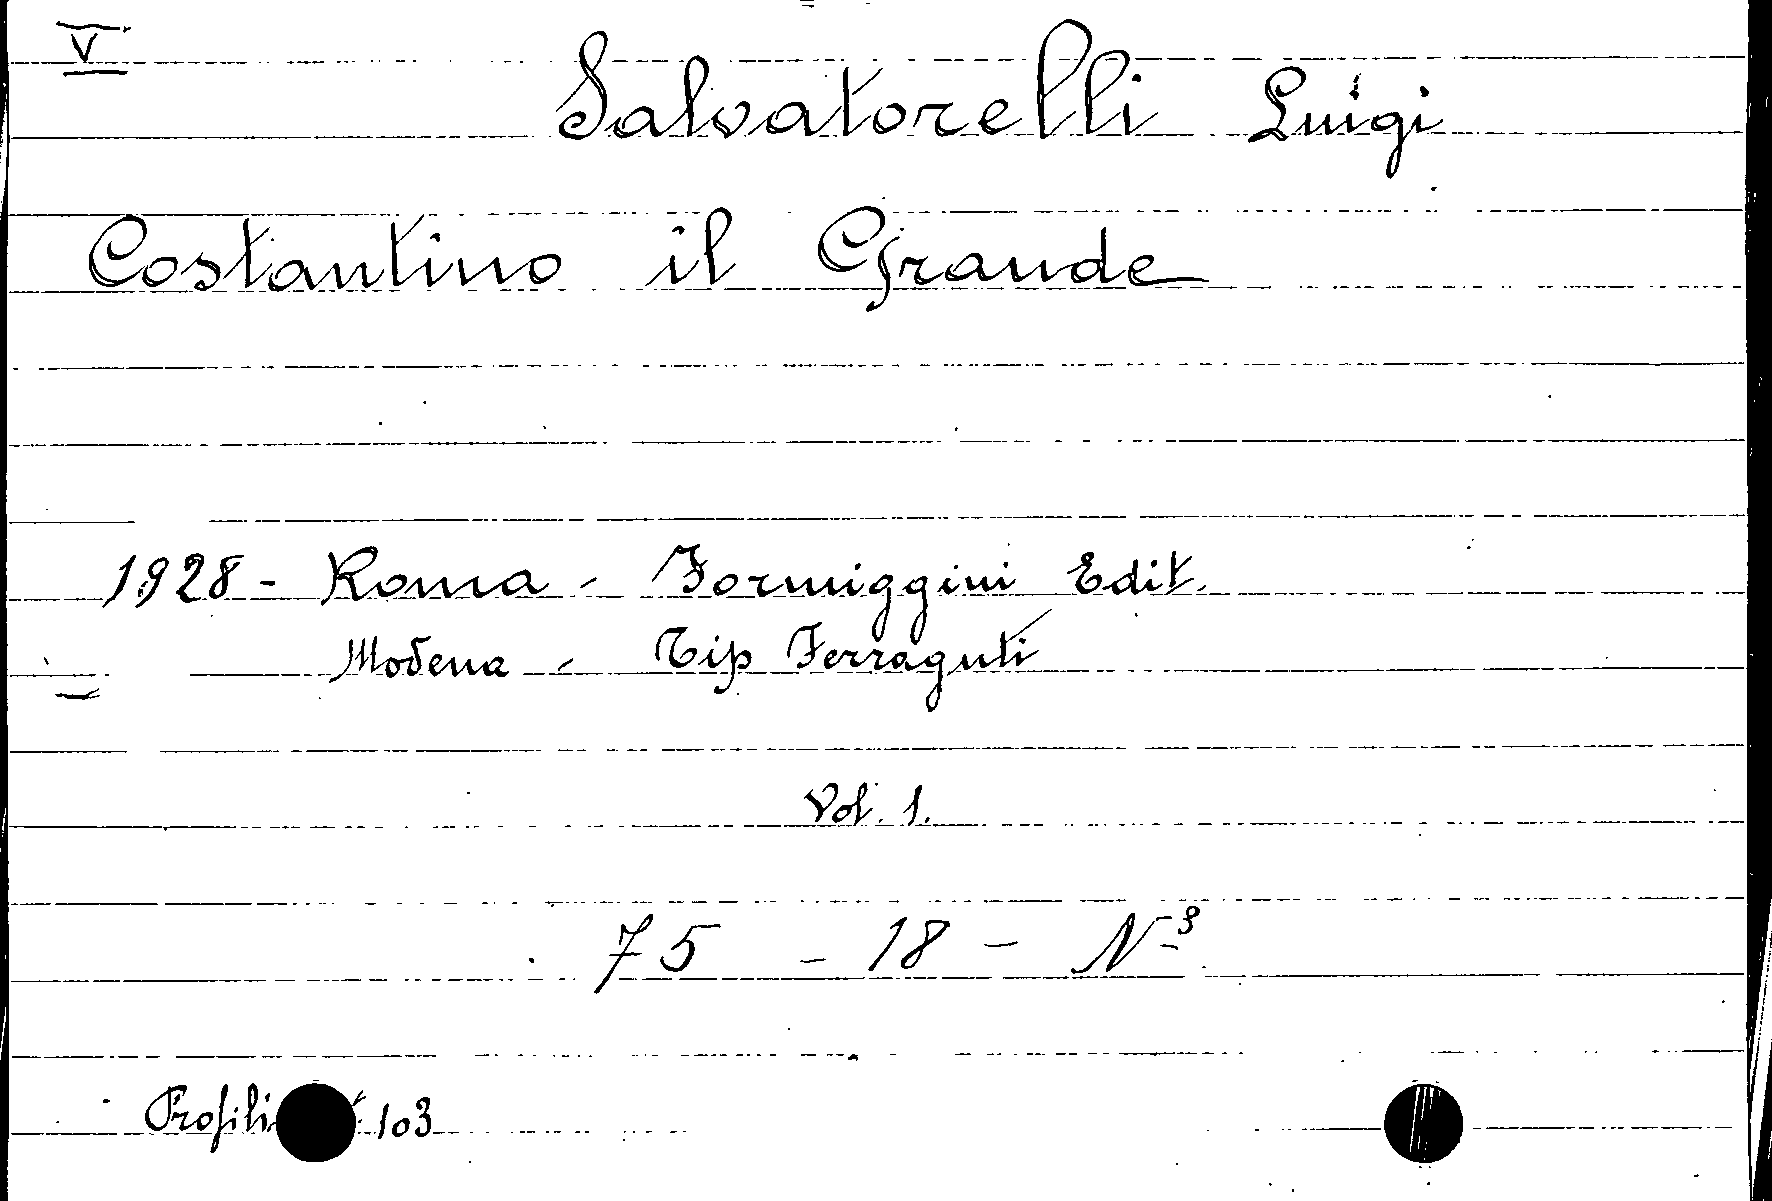 V
Salvatorelli Luigi
Costantino il Grande
1928 - Roma - Formiggini Edit.
Modena - Tip Ferraguti
Vol. 1.
75 - 18 - N 3
Profili 103